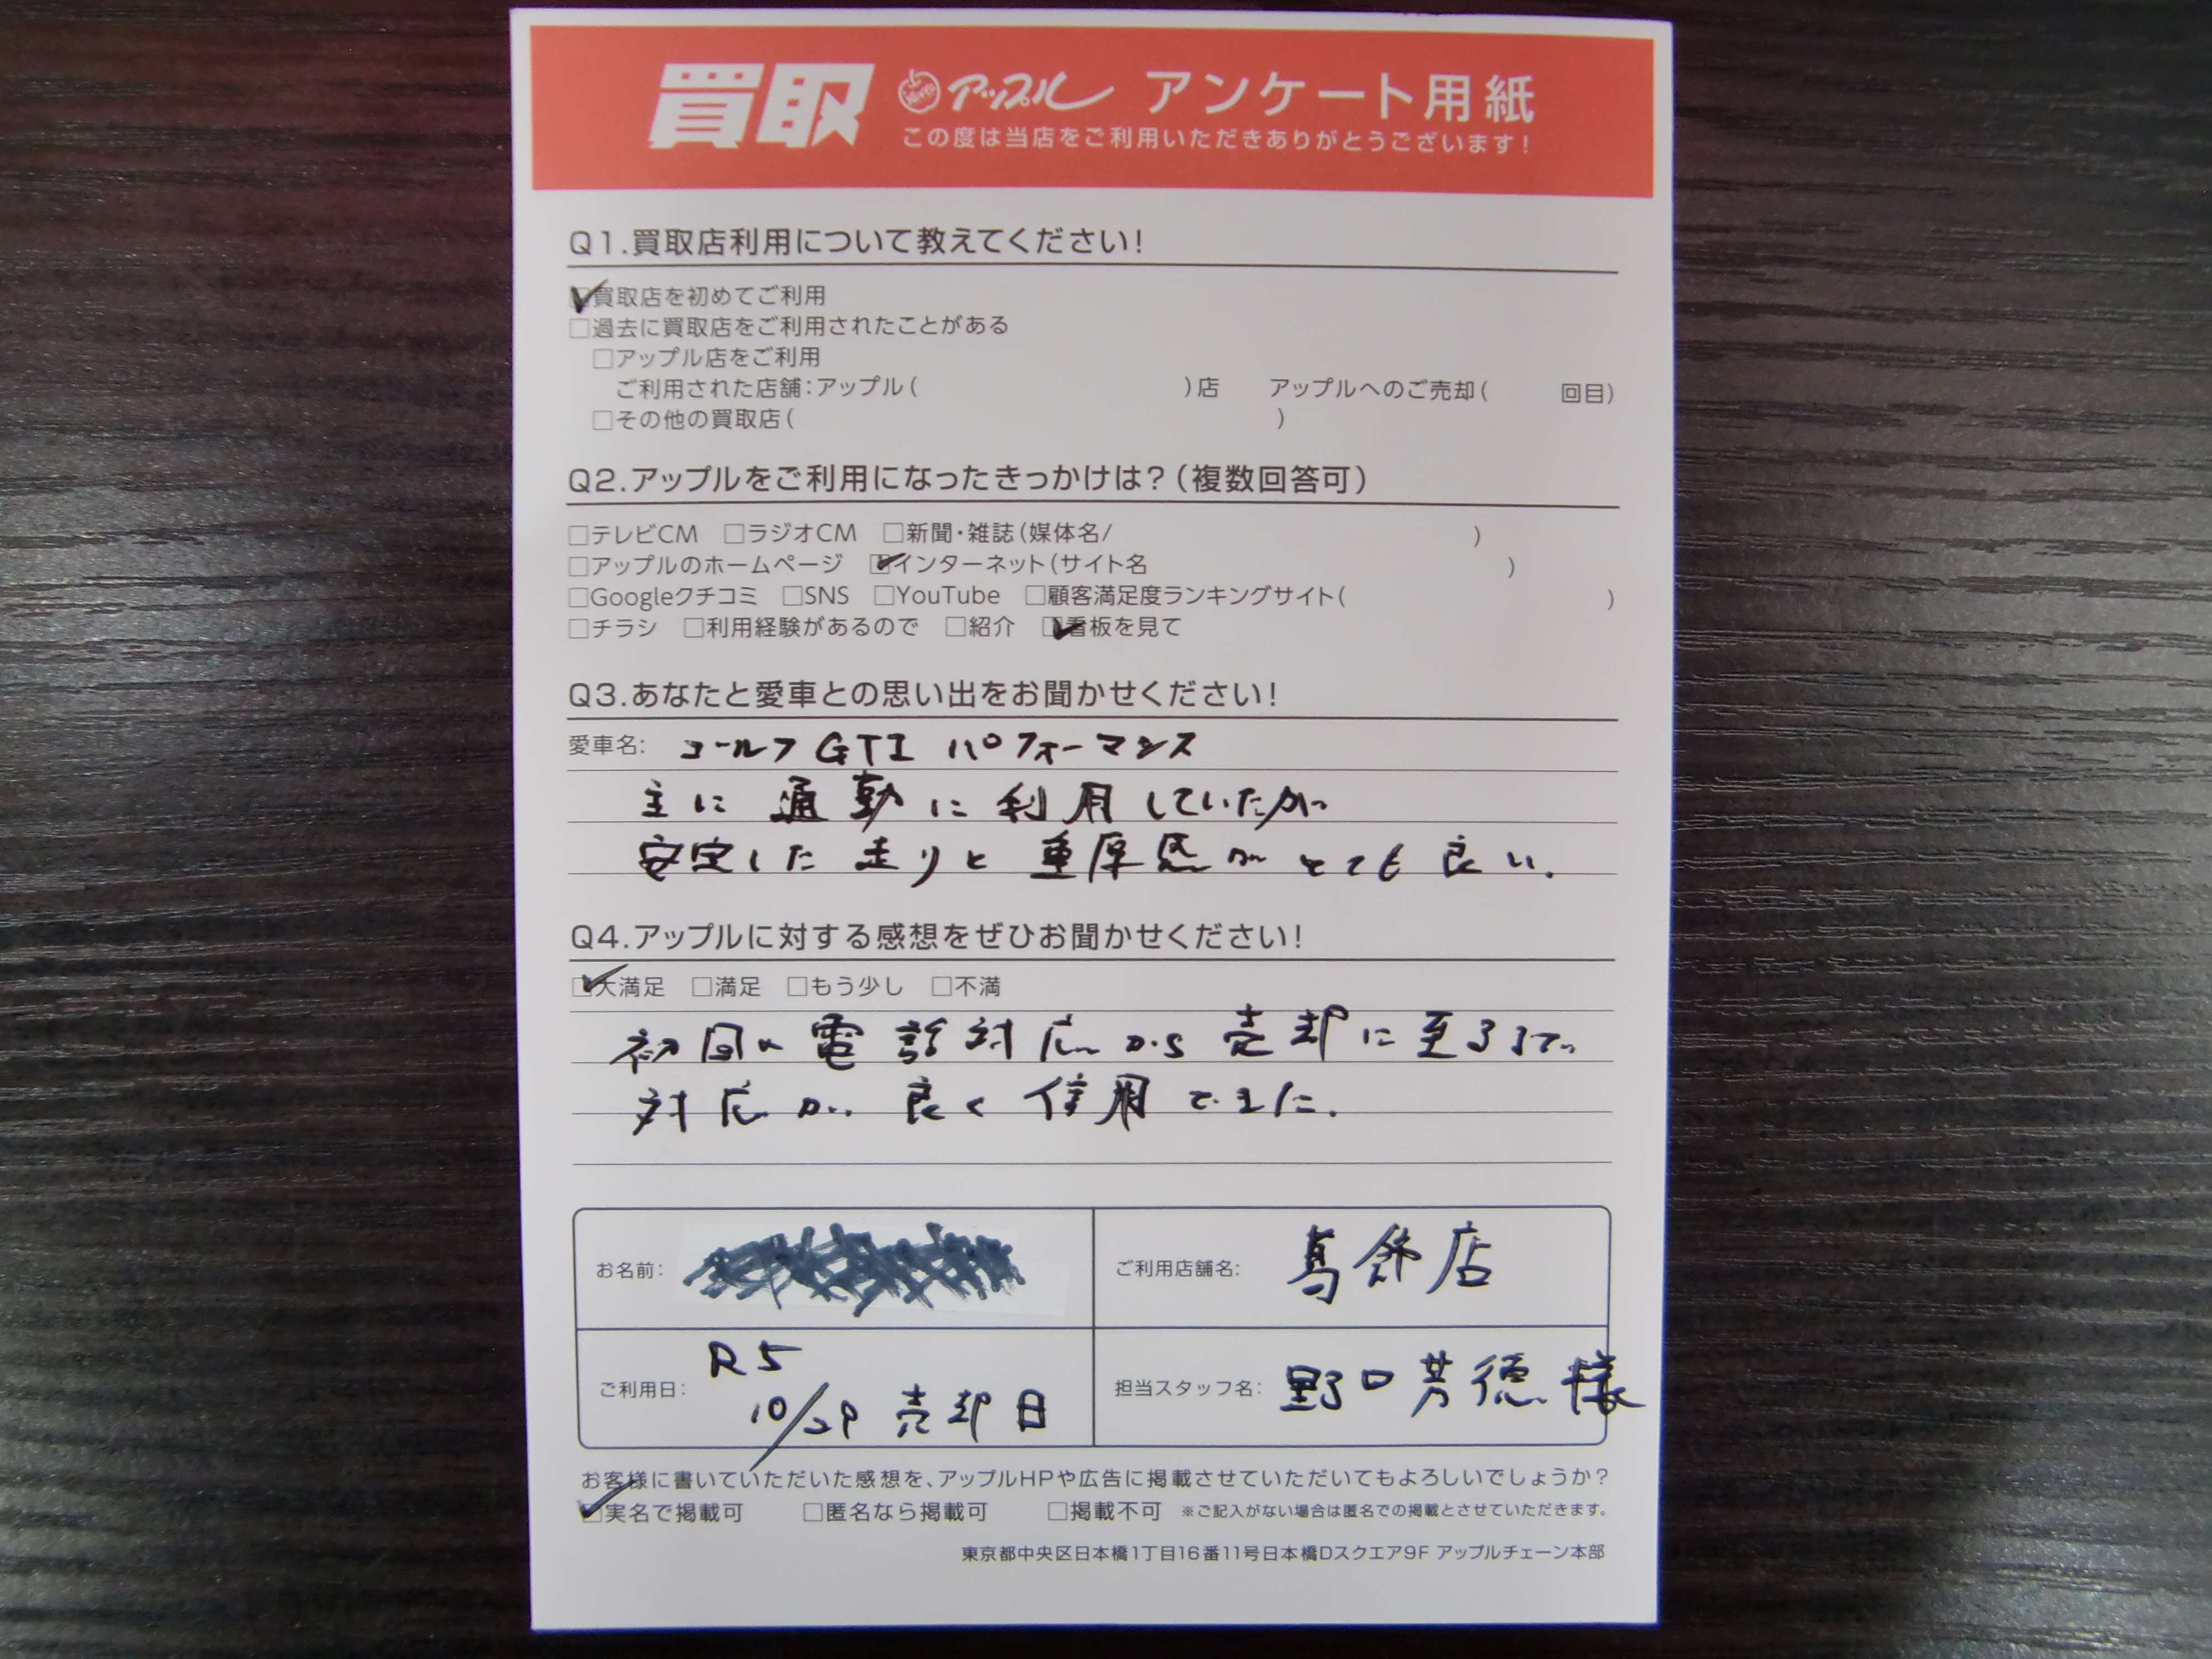 買取 アップル アンケート用紙
この度は当店をご利用いただきありがとうございます!
Q1.買取店利用について教えてください!
☑買取店を初めてご利用
□過去に買取店をご利用されたことがある
□アップル店をご利用
ご利用された店舗:アップル( )店 アップルへのご売却( 回目)
□その他の買取店( )
Q2.アップルをご利用になったきっかけは?(複数回答可)
□テレビCM □ラジオCM □新聞・雑誌(媒体名/ )
□アップルのホームページ ☑インターネット(サイト名 )
□Googleクチコミ □SNS □YouTube □顧客満足度ランキングサイト( )
□チラシ □利用経験があるので □紹介 ☑看板を見て
Q3.あなたと愛車との思い出をお聞かせください!
愛車名: ゴールフ GTI パフォーマンス
主に通勤に利用していたが
安定した走りと重厚感がとても良い.
Q4.アップルに対する感想をぜひお聞かせください!
☑大満足 □満足 □もう少し □不満
初回の電話対応から売却に至るまで
対応が良く信用できた.
お名前: ご利用店舗名: 葛飾店
ご利用日: R5 10/29 売却日 担当スタッフ名: 野口芳徳様
お客様に書いていただいた感想を、アップルHPや広告に掲載させていただいてもよろしいでしょうか?
☑実名で掲載可 □匿名なら掲載可 □掲載不可 ※ご記入がない場合は匿名での掲載とさせていただきます。
東京都中央区日本橋1丁目16番11号日本橋Dスクエア9F アップルチェーン本部